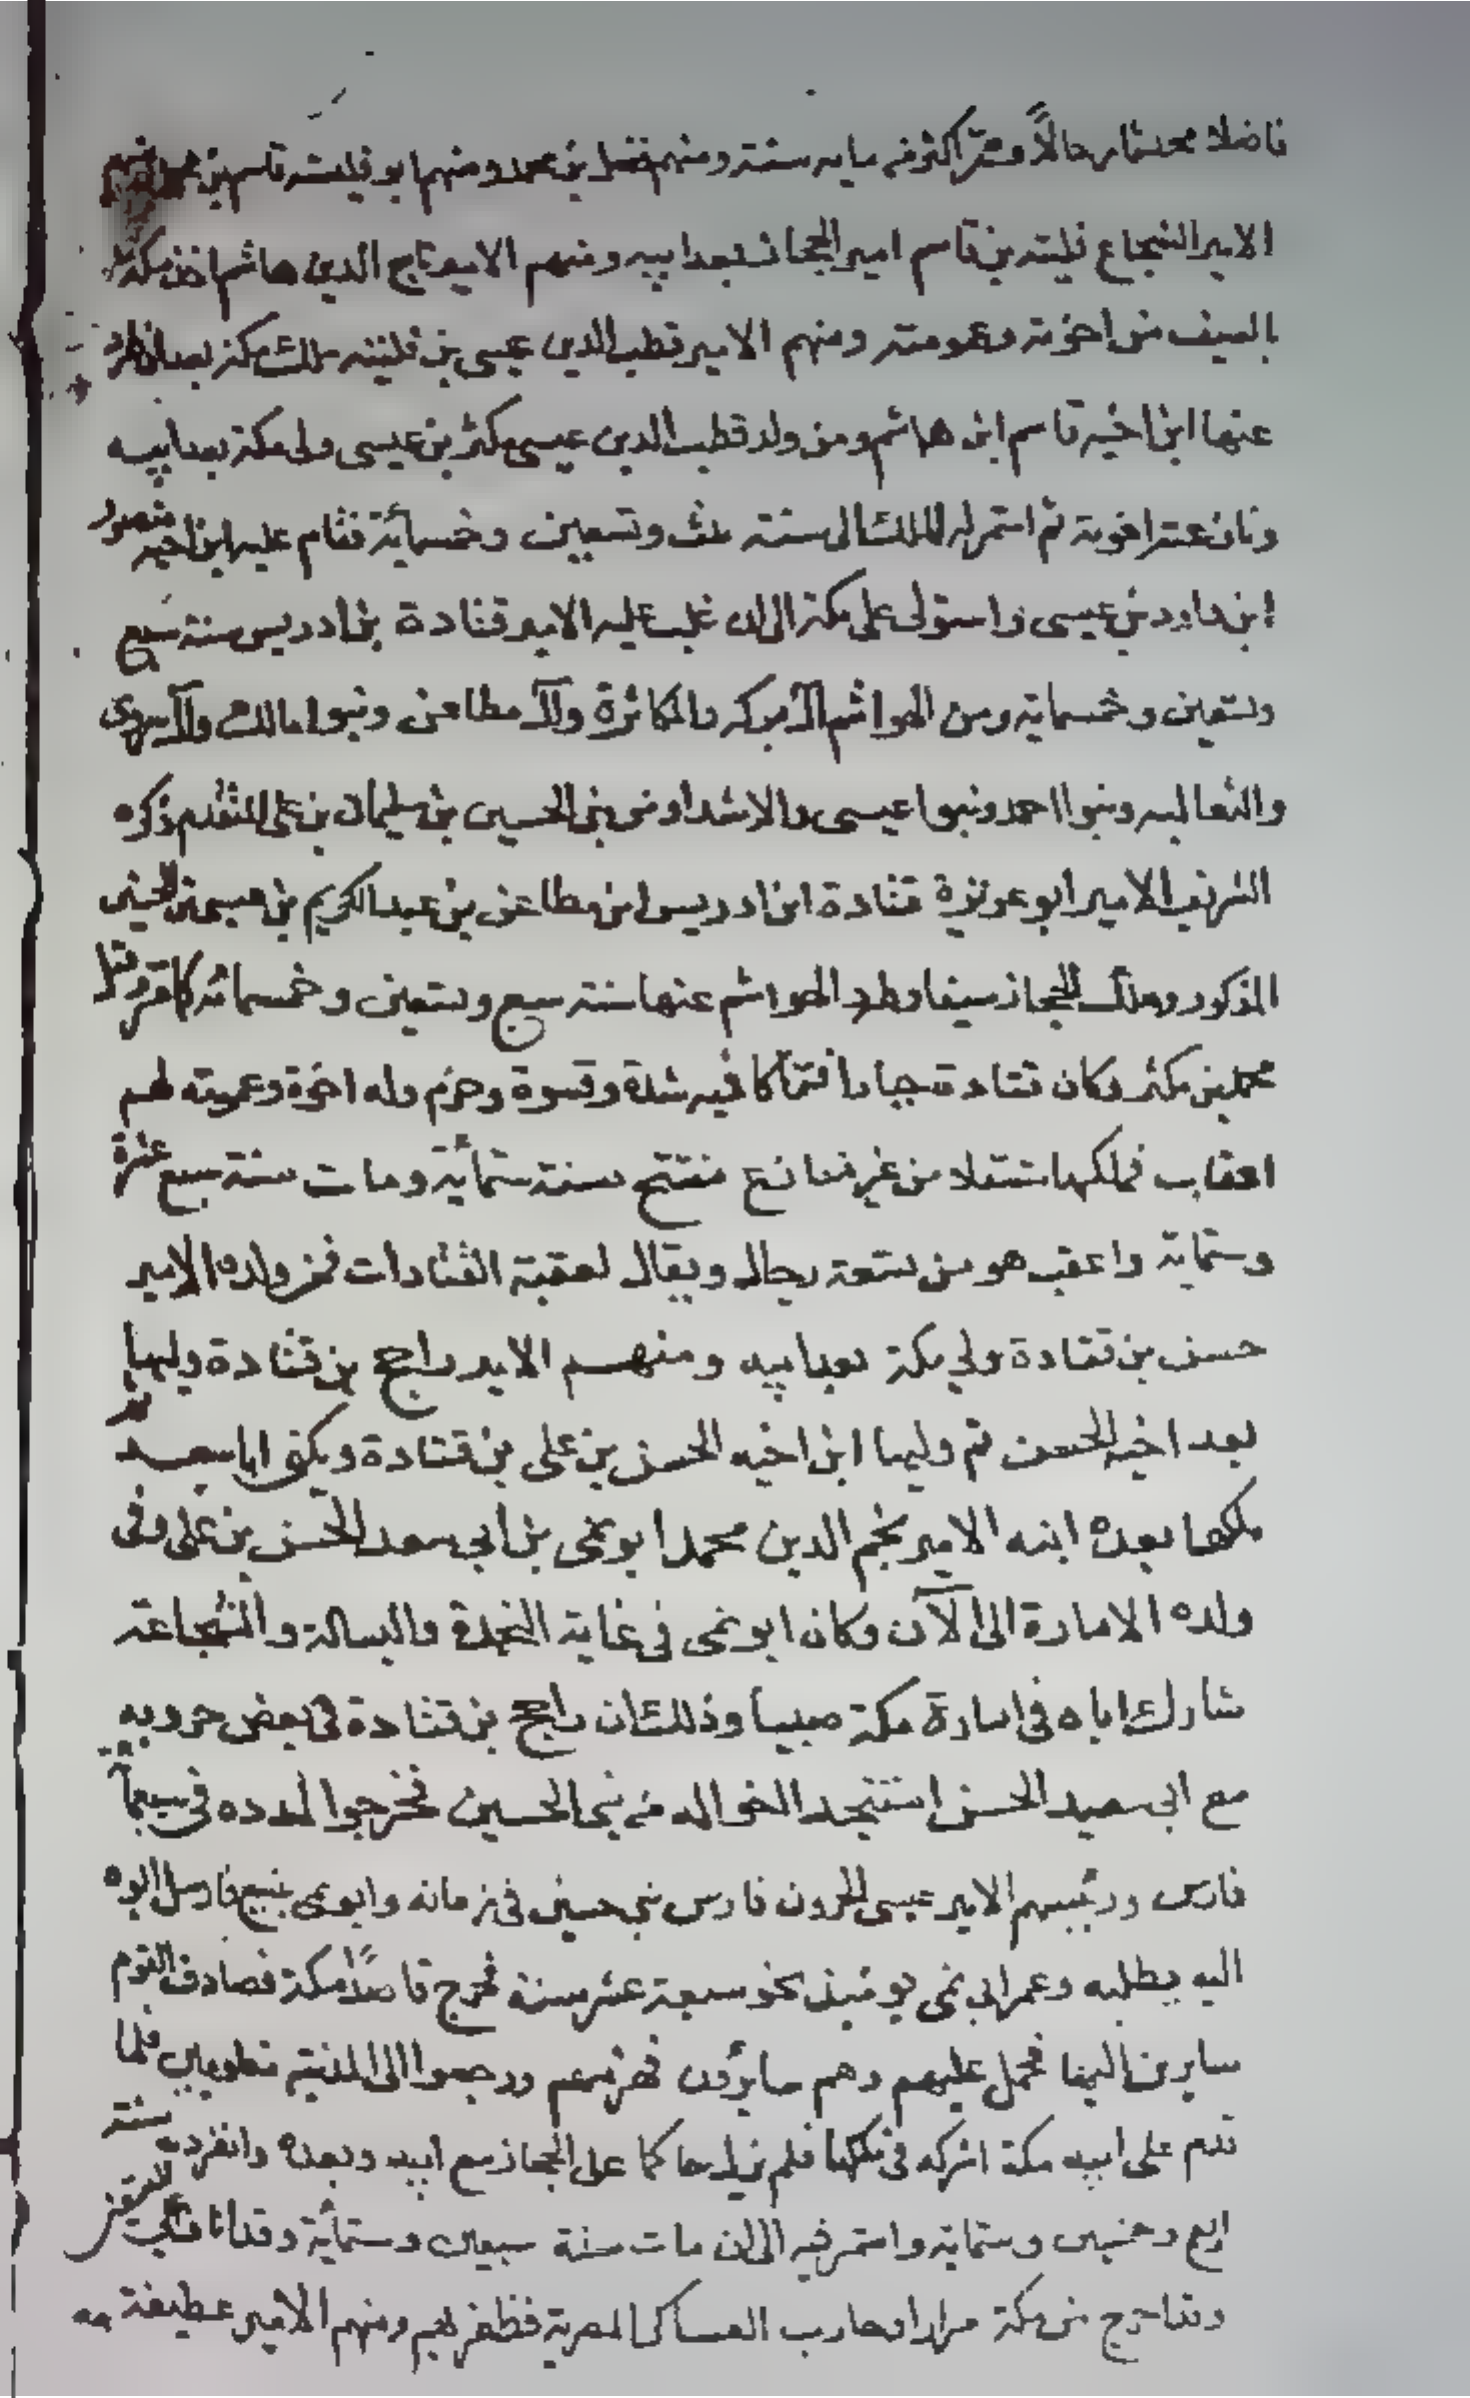 فاضلا محدثا رحالاً وعمر اكثر من مايه سنة ومنهم فضل بن محمد ومنهم ابو فليته قاسم بن محمد ومنهم
الامير الشجاع فليته بن قاسم امير الحجاز بعد ابيه ومنهم الامير تاج الدين هاشم اخذ مكة
بالسيف من اخوته وعمومته ومنهم الامير قطب الدين عيسى بن فليته ملك مكة بعد ان طرد
عنها ابن اخيه قاسم ابن هاشم ومن ولد قطب الدين عيسى مكثر بن عيسى ولى مكة بعد ابيه
اخوته ثم استمر له الملك الى سنة ثلث وتسعين وخمسمائة فقام عليه ابن اخيه منصور
ابن داود بن عيسى واستولى على مكة الى ان غلب عليه الامير قتادة بن ادريس سنة سبع
وتسعين وخمسماية ومن الهواشم آل بركه والمكاثرة وآل مطاعن وبنوا مالك وآل
والثعالبه وبنوا احمد وبنوا عيسى والاشداو ومن بنى الحسين بن سليمان بن على المتقدم ذكره
الشريف الامير ابو عزيزة قتادة ابن ادريس ابن مطاعن بن عبد الكريم بن عيسى بن الحسين
المذكور وملك الحجاز سيفا وطرد الهواشم عنها سنة سبع وتسعين وخمسمائه كا مر وقتل
محمد بن مكثر وكان قتادة جبارا فتاكا فيه شدة وقسوة وحزم وله اخوة وعمومته لهم
اعقاب فملكها مستقلا من غير منازع مفتتح سنة ستمائة ومات سنة سبع عشرة
وستماية واعقب هو من تسعة رجال ويقال لعقبه القتادات فمن ولده الامير
حسن بن قتادة ولي مكة بعد ابيه ومنهم الامير راجح بن قتادة وليها
بعد اخيه الحسن ثم وليها ابن اخيه الحسن بن على بن قتادة ويكنى ابا سعيد
ملكها بعده ابنه الامير نجم الدين محمد ابو نمى بن ابي سعد الحسن بن على وفى
ولده الامارة الى الآن وكان ابو نمى فى غاية النجدة والبسالة والشجاعة
شارك اباه فى امارة مكة صبيا وذلك ان راجح بن قتادة فى بعض حروبه
مع ابى سعيد الحسن استنجد اخواله من بنى الحسين فخرجوا لمدده فى سبعمائة
فارس ورئيسهم الامير عيسى الحرون فارس بنى حسين فى زمانه وابو نمى بينبع فارسل ابوه
اليه يطلبه وعمر ابى نمى يومئذ نحو سبعة عشر سنة فخرج قاصداً مكة فصادف القوم
سايرين اليها فحمل عليهم وهم سايرون فهزمهم ورجعوا الى المدينة مغلوبين فلما
قدم على ابيه مكة اشركه فى ملكها فلم يزل حاكما على الحجاز مع ابيه وبعده وانفرد به سنة
اربع وخمسين وستماية واستمر فيه الى ان مات سنة سبعين وستمائة وقد
وقد اخرج من مكة مرارا وحارب العساكر المصرية فظفر بهم ومنهم الامير عطيفة